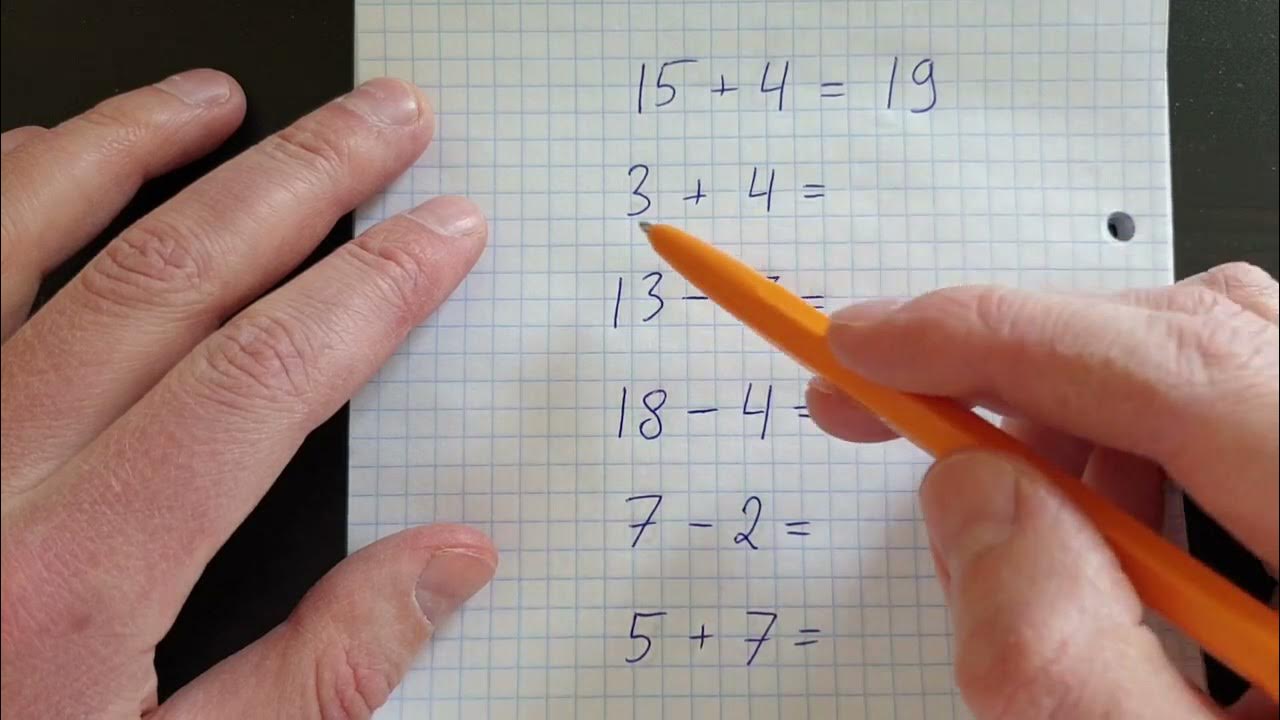 15 + 4 = 19
3 + 4 =
13 - =
18 - 4 =
7 - 2 =
5 + 7 =